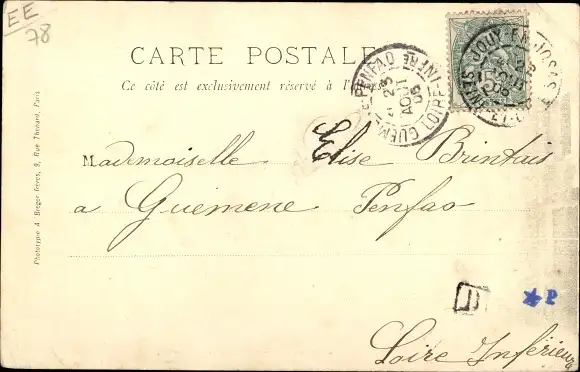 EE
78
CARTE POSTALE
Ce côté est exclusivement réservé à l'
GUÉMENÉ-PENFAO
23
AOUT
05
LOIRE-INFRE
JOUY-EN-JOSAS
5
Mademoiselle Elise Brintais
a Guemene Penfao
Loire Inférieure
Phototypie A. Breger frères, 9, Rue Thénard, Paris
P